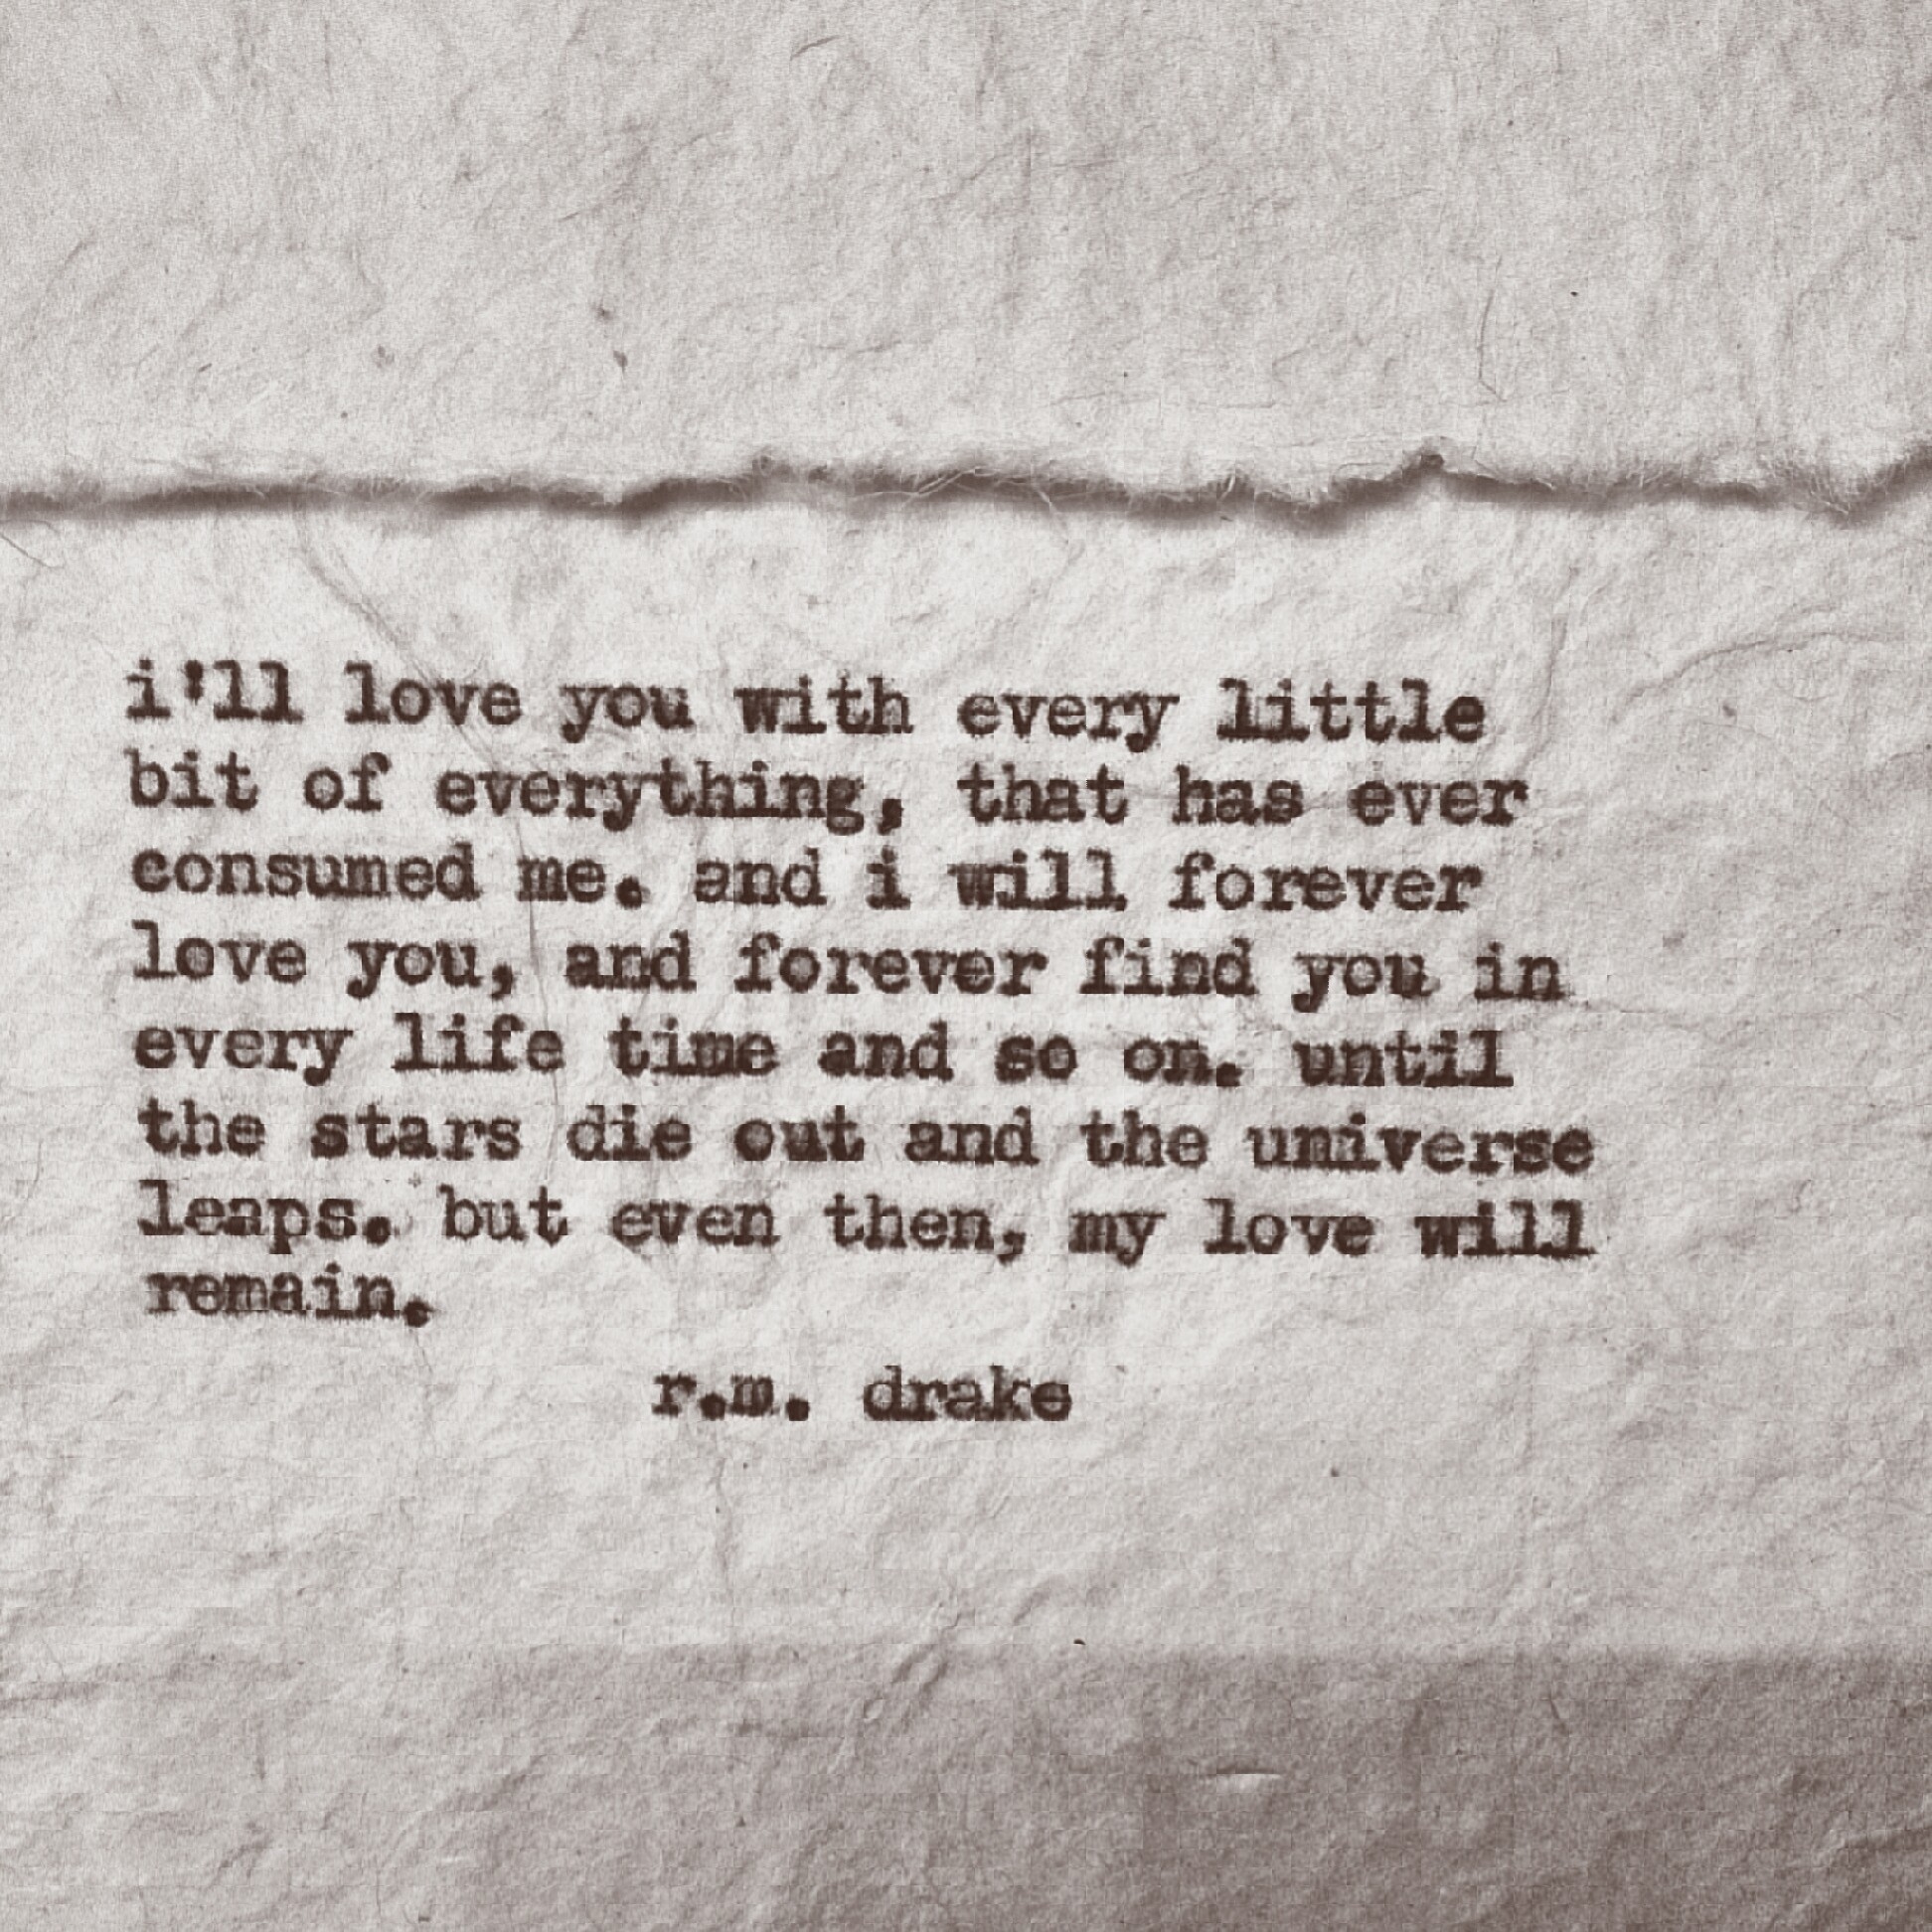 i'll love you with every little
bit of everything, that has ever
consumed me. and i will forever
love you, and forever find you in
every life time and so on. until
the stars die out and the universe
leaps. but even then, my love will
remain.
r.m. drake